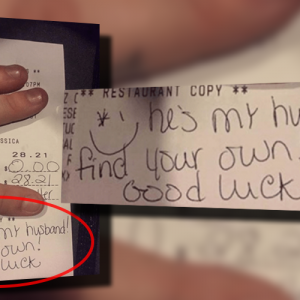 ** RESTAURANT COPY **
he's my hu
find your own.
Good luck
SSICA
28.21
0.00
28.21
my husband!
own!
luck